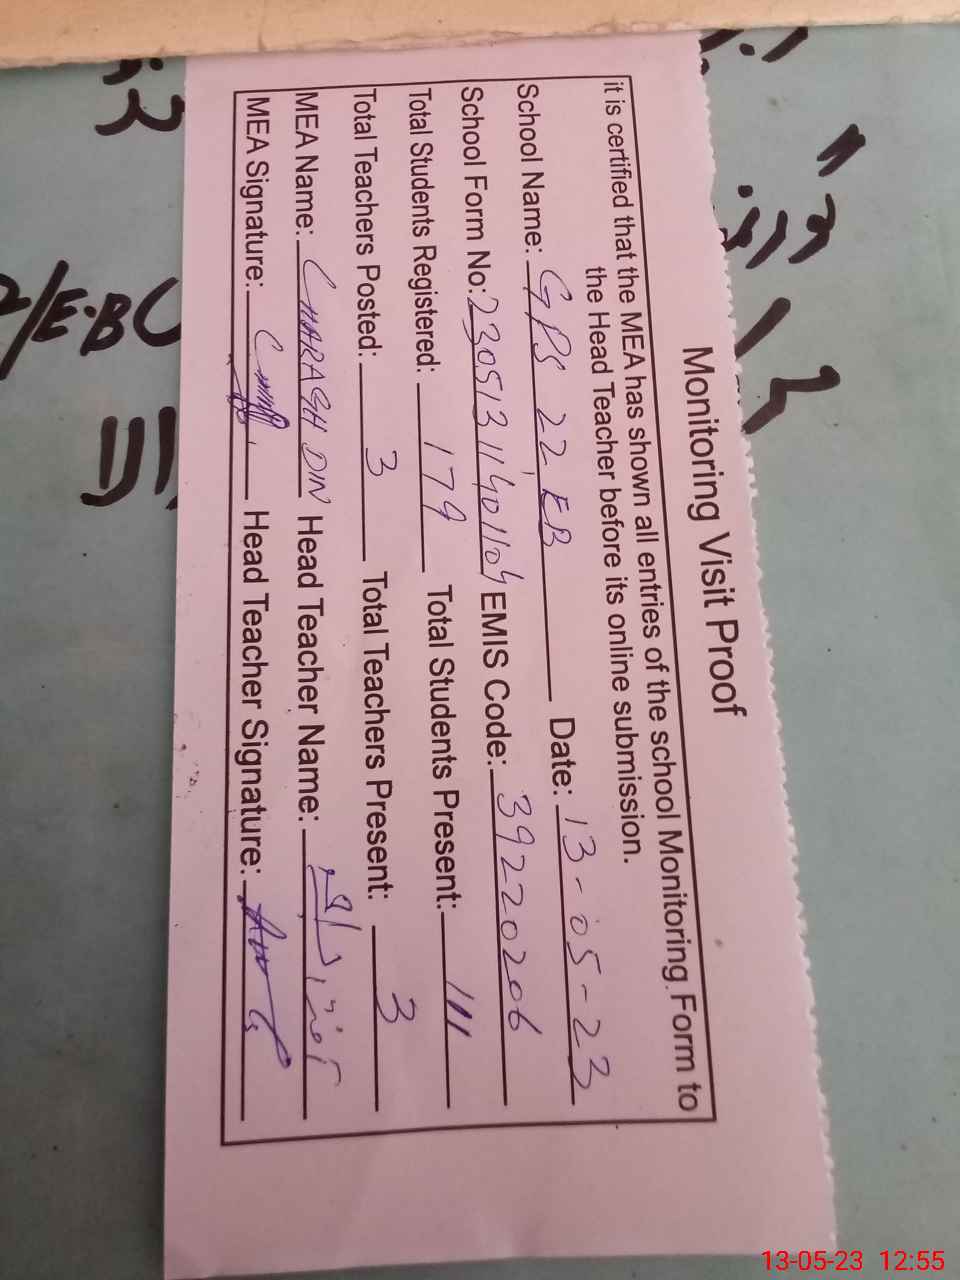 Monitoring Visit Proof
it is certified that the MEA has shown all entries of the school Monitoring Form to
the Head Teacher before its online submission.
School Name: GPS 22 EB Date: 13-05-23
School Form No: EMIS Code: 39220206
Total Students Registered: 179 Total Students Present: 111
Total Teachers Posted: 3 Total Teachers Present: 3
MEA Name: CHARAGH DIN Head Teacher Name:
MEA Signature: Head Teacher Signature:
/E.B
13-05-23 12:55